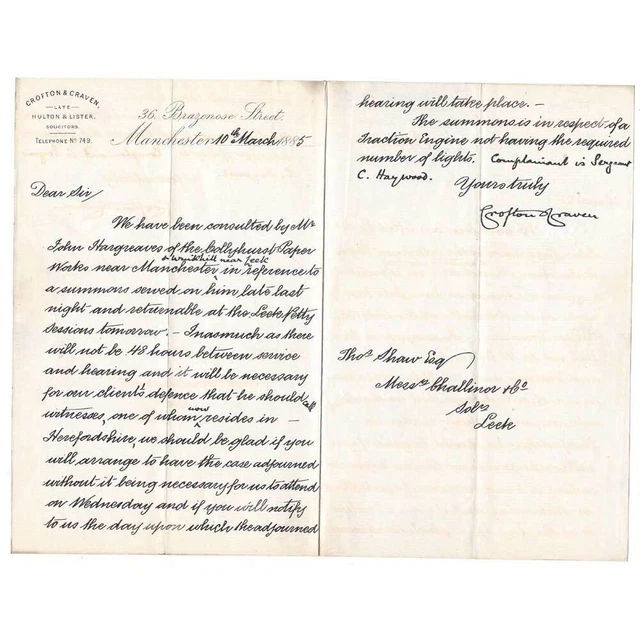 CROFTON & CRAVEN,
LATE
HULTON & LISTER,
SOLICITORS.
TELEPHONE No 749.
36, Brazenose Street,
Manchester 10th March 1885
Dear Sir
We have been consulted by Mr
John Hargreaves of the Collyhurst Paper
near Leek
Works near Manchester in reference to
a summons served on him late last
night and returnable at the Leek Petty
Sessions tomorrow. — Inasmuch as there
will not be 48 hours between service
and hearing and it will be necessary
for our client's defence that he should call
witnesses, one of whom now resides in —
Herefordshire, we should be glad if you
will arrange to have the case adjourned
without it being necessary for us to attend
on Wednesday and if you will notify
to us the day upon which the adjourned
hearing will take place. —
The summons is in respect of a
Traction Engine not having the required
number of lights. Complainant is Sergeant
C. Haywood.
Yours truly
Crofton & Craven
Thos Shaw Esq
Messrs Challinor & Co
Solrs
Leek